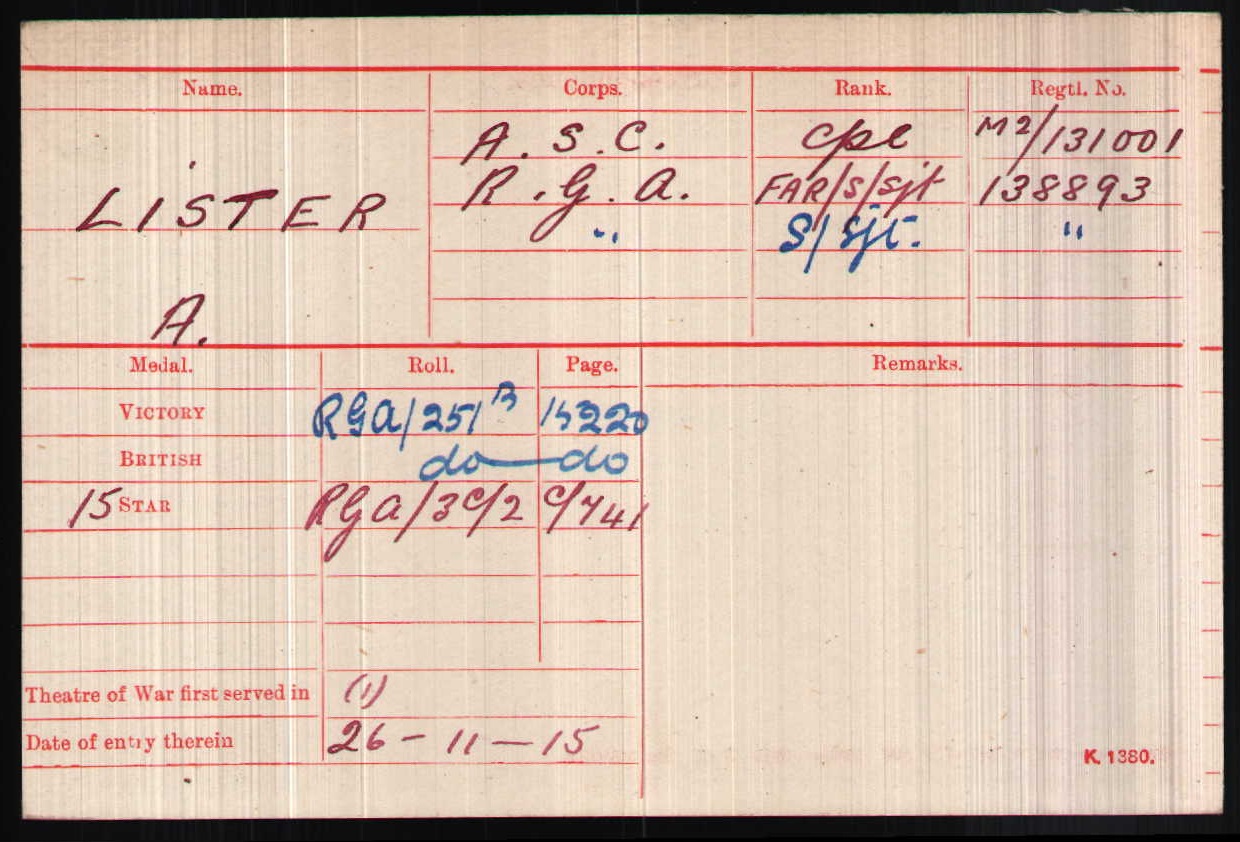 Name. Corps. Rank. Regtl. No.
LISTER
A.
A. S. C. Cpl M2/131001
R. G. A. FAR/S/Sjt 138893
" S/Sjt. "
Medal. Roll. Page. Remarks.
VICTORY RGA/251B
BRITISH do do
15 STAR RGA/3C/2 C/741
Theatre of War first served in (1)
Date of entry therein 26 - 11 - 15
K. 1380.